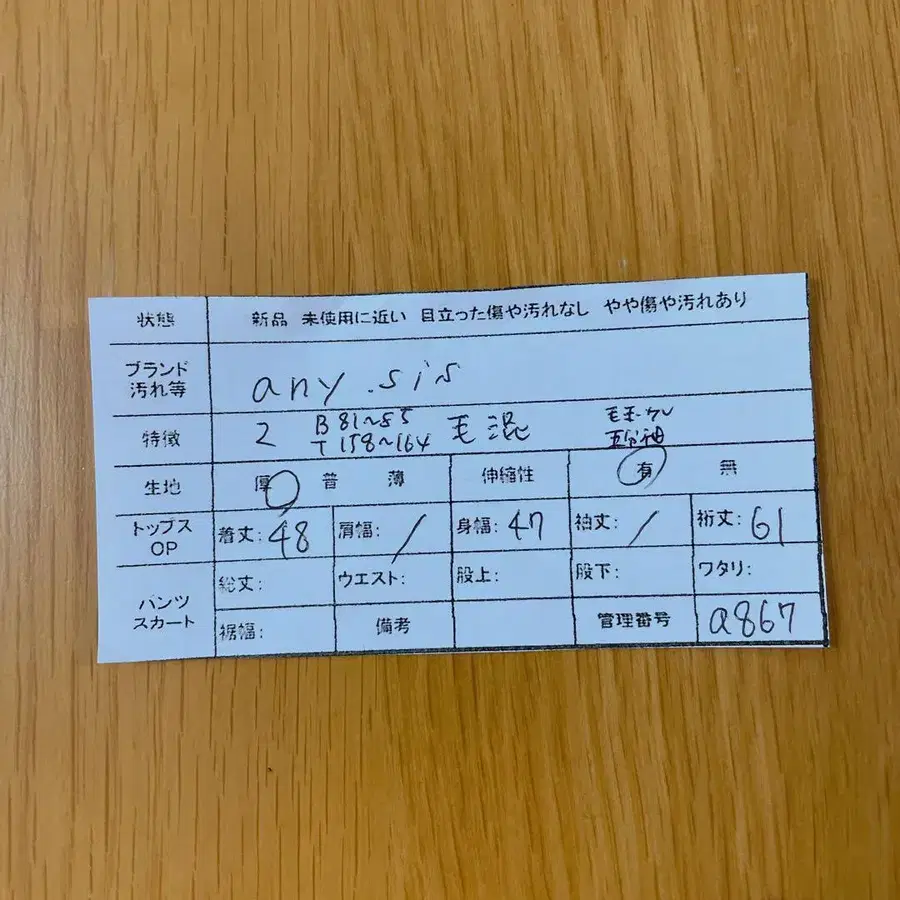 状態 新品 未使用に近い 目立った傷や汚れなし やや傷や汚れあり
ブランド
汚れ等
any.sis
特徴
2
B 81~85
T 158~164
毛混
五分袖
生地 厚 普 薄 伸縮性 有 無
トップス
OP
着丈: 48 肩幅: / 身幅: 47 袖丈: / 裄丈: 61
パンツ
スカート
総丈: ウエスト: 股上: 股下: ワタリ:
裾幅: 備考 管理番号 a867